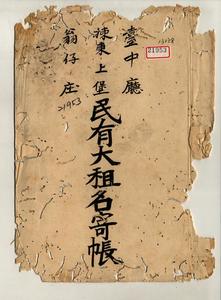 臺中廳
揀東上堡
翁仔庄
民有大租名寄帳
21953
21953